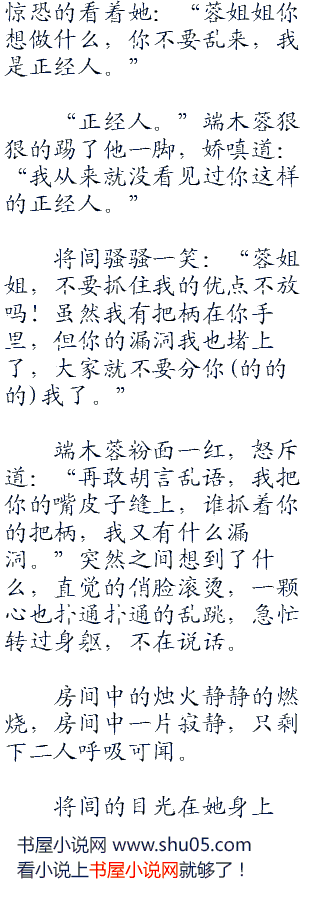 惊恐的看着她：“蓉姐姐你
想做什么，你不要乱来，我
是正经人。”
“正经人。”端木蓉狠
狠的踢了他一脚，娇嗔道：
“我从来就没看见过你这样
的正经人。”
将闾骚骚一笑：“蓉姐
姐，不要抓住我的优点不放
吗！虽然我有把柄在你手
里，但你的漏洞我也堵上
了，大家就不要分你(的的
的)我了。”
端木蓉粉面一红，怒斥
道：“再敢胡言乱语，我把
你的嘴皮子缝上，谁抓着你
的把柄，我又有什么漏
洞。”突然之间想到了什
么，直觉的俏脸滚烫，一颗
心也扑通扑通的乱跳，急忙
转过身躯，不在说话。
房间中的烛火静静的燃
烧，房间中一片寂静，只剩
下二人呼吸可闻。
将闾的目光在她身上
书屋小说网 www.shu05.com
看小说上书屋小说网就够了！